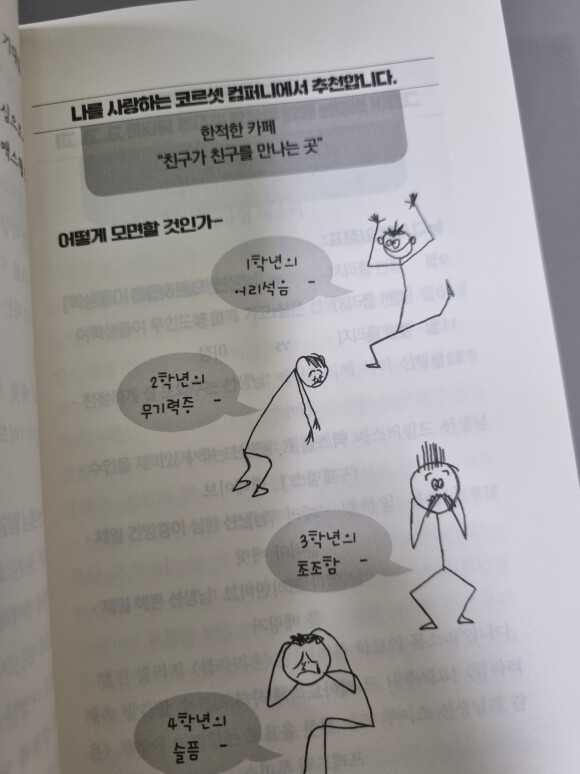 나를 사랑하는 코르셋 컴퍼니에서 추천합니다.
한적한 카페
“친구가 친구를 만나는 곳”
어떻게 모면할 것인가-
1학년의
어리석음 -
2학년의
무기력증 -
3학년의
초조함 -
4학년의
슬픔 -